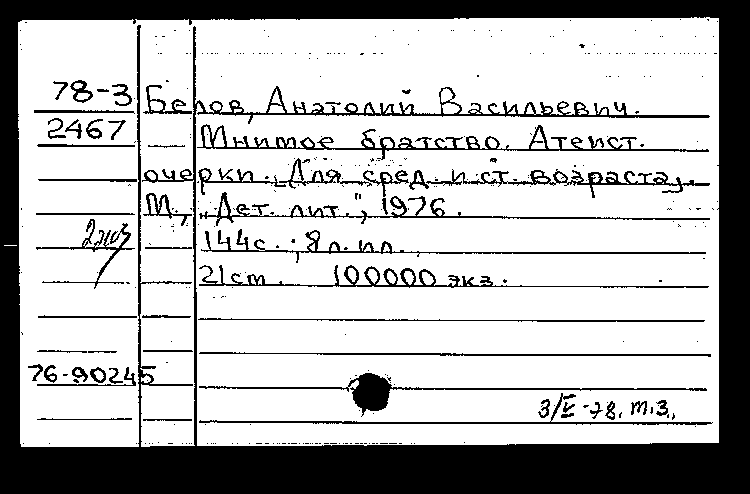 78-3 Белов, Анатолий Васильевич.
2467 Мнимое братство. Атеист.
очерки. [Для сред. и ст. возраста].
М., „Дет. лит.", 1976.
144с.; 8л. ил.
21см. 100000 экз.
76-90245
3/V-78. т.з.